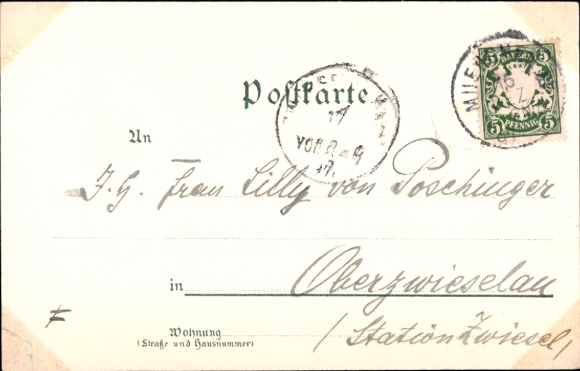 Postkarte
MUENCHEN
5 BAYERN 5
5 PFENNIG 5
VOR 8-9
An
I. H. Frau Lilly von Poschinger
in Oberzwieselau
Wohnung
(Straße und Hausnummer)
(Station Zwiesel)